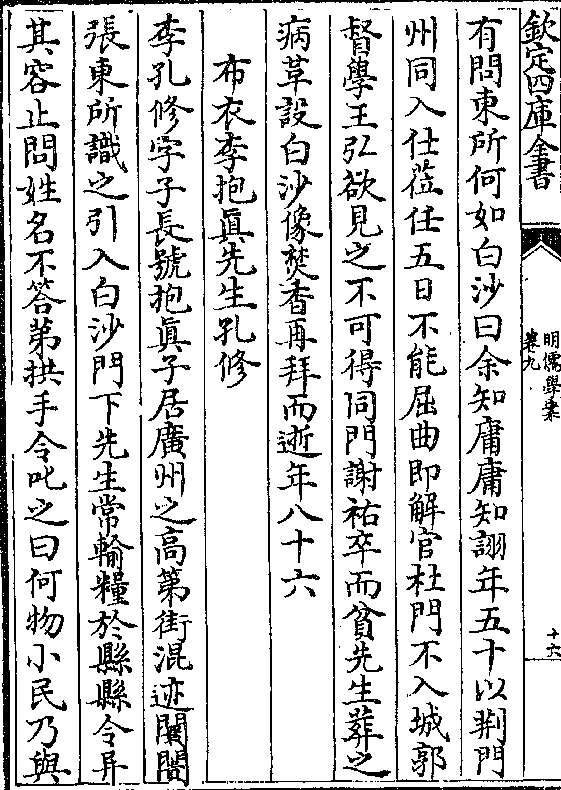 欽定四庫全書
明儒學案
卷九
十六
有問東所何如白沙曰余知庸庸知詡年五十以荆門
州同入仕蒞任五日不能屈曲即解官杜門不入城郭
督學王弘欲見之不可得同門謝祐卒而貧先生葬之
病革設白沙像焚香再拜而逝年八十六
布衣李抱眞先生孔修
李孔修字子長號抱眞子居廣州之高第街混迹闤闠
張東所識之引入白沙門下先生常輸糧於縣縣令异
其容止問姓名不答第拱手令叱之曰何物小民乃與